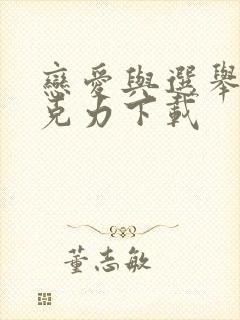 戀愛與選舉
克力下載
董志敏